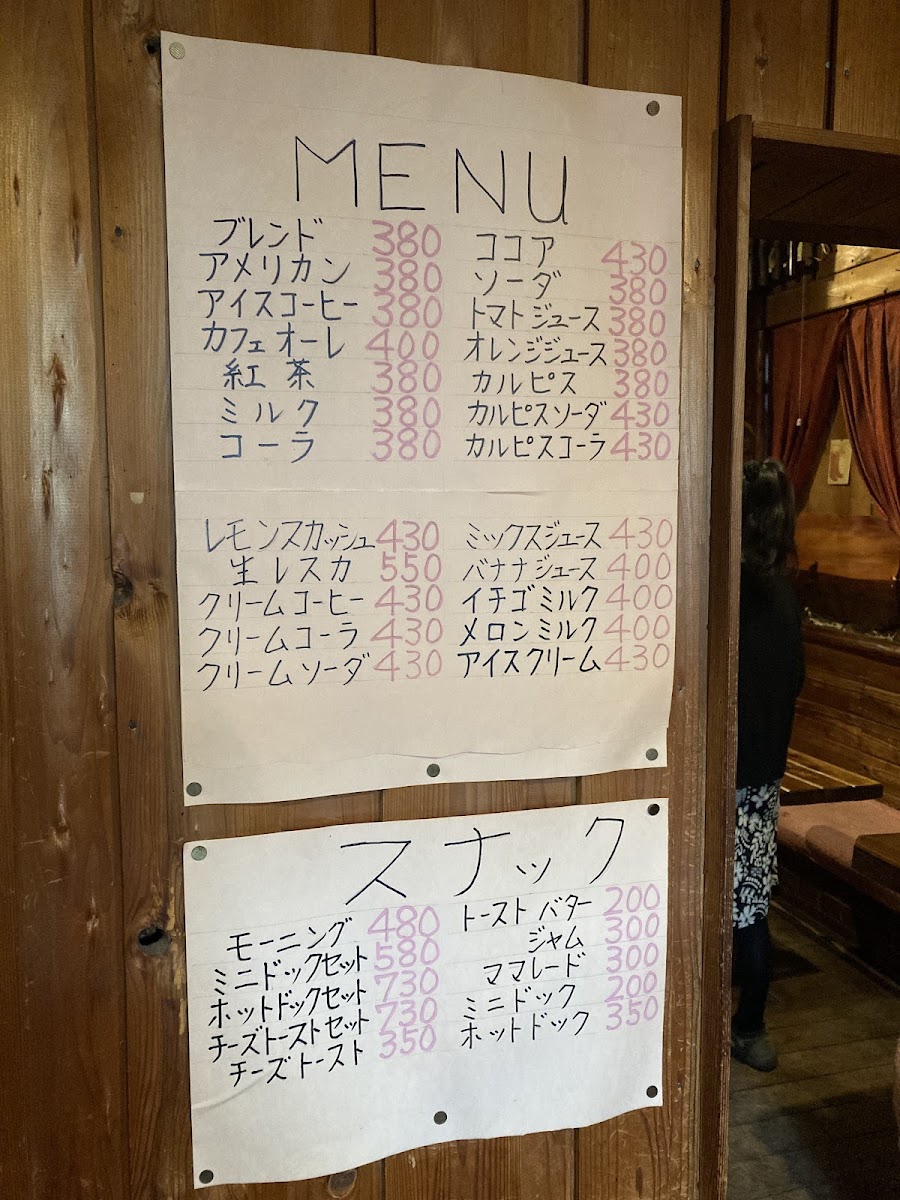 MENU
ブレンド 380
アメリカン 380
アイスコーヒー 380
カフェオーレ 400
紅茶 380
ミルク 380
コーラ 380
ココア 430
ソーダ 380
トマトジュース 380
オレンジジュース 380
カルピス 380
カルピスソーダ 430
カルピスコーラ 430
レモンスカッシュ 430
生レスカ 550
クリームコーヒー 430
クリームコーラ 430
クリームソーダ 430
ミックスジュース 430
バナナジュース 400
イチゴミルク 400
メロンミルク 400
アイスクリーム 430
スナック
モーニング 480
ミニドックセット 580
ホットドックセット 730
チーズトーストセット 730
チーズトースト 350
トーストバター 200
ジャム 300
ママレード 300
ミニドック 200
ホットドック 350